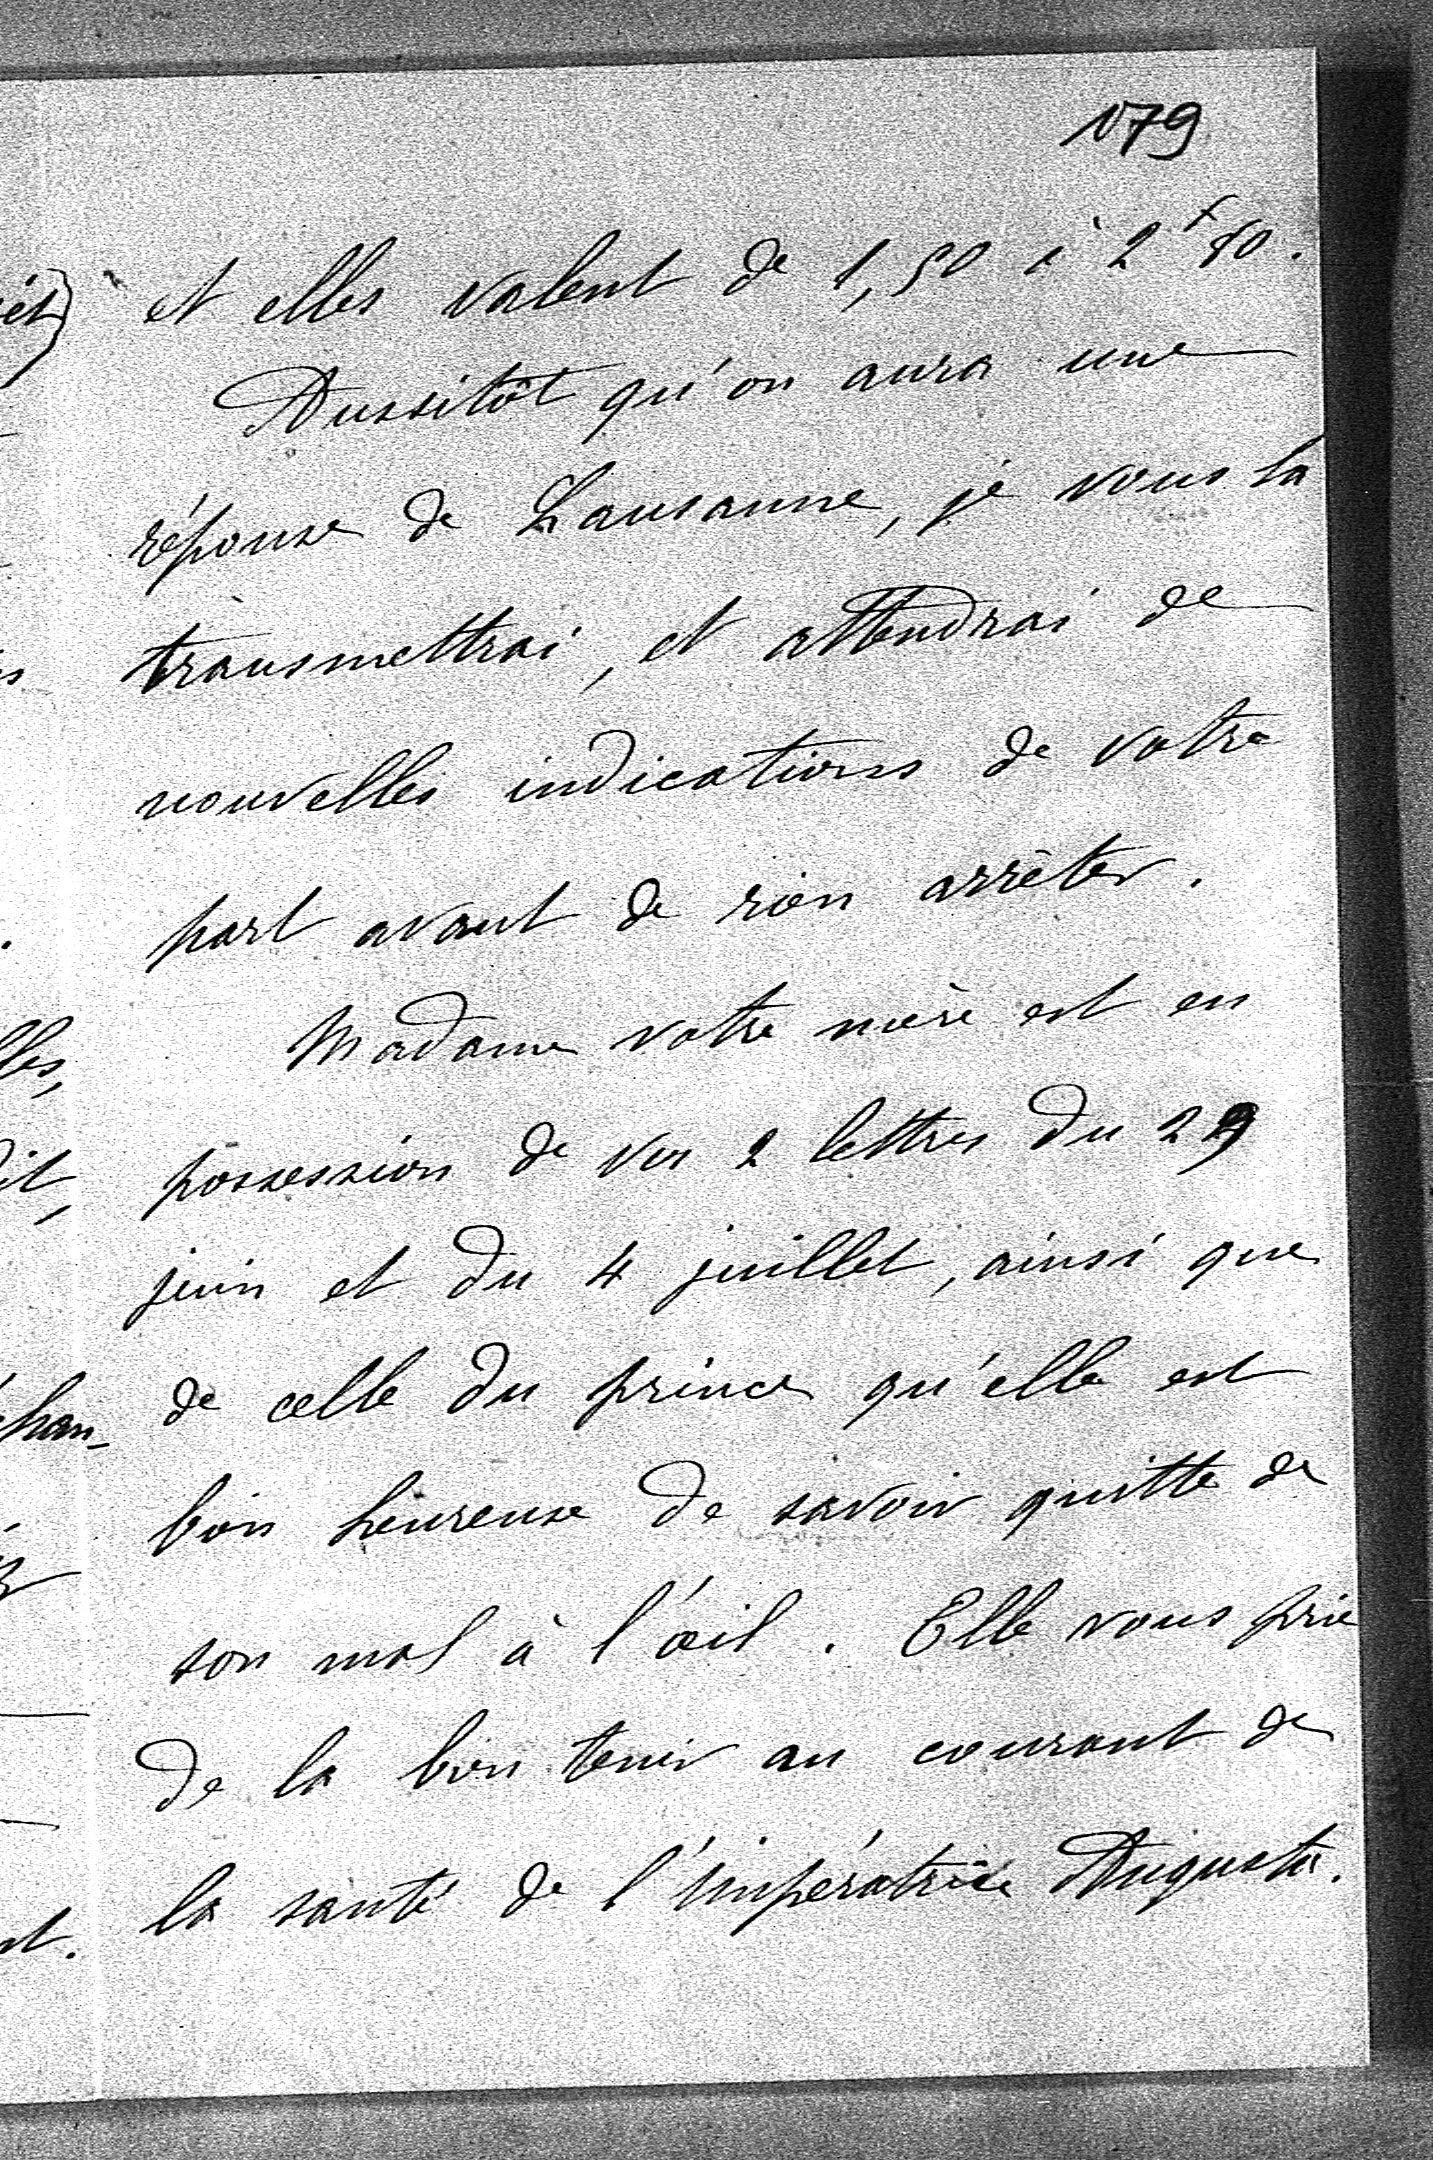 179
et elles valent de 1,50 à 2f 80.
Aussitôt qu'on aura une
réponse de Lausanne, je vous la
transmettrai, et attendrai de
nouvelles indications de votre
part avant de rien arrêter.
Madame votre mère est en
possession de vos 2 lettres du 29
juin et du 4 juillet, ainsi que
de celle du prince qu'elle est
bien heureuse de savoir quitte de
son mal à l'œil. Elle vous prie
de la bien tenir au courant de
la santé de l'impératrice Augusta.